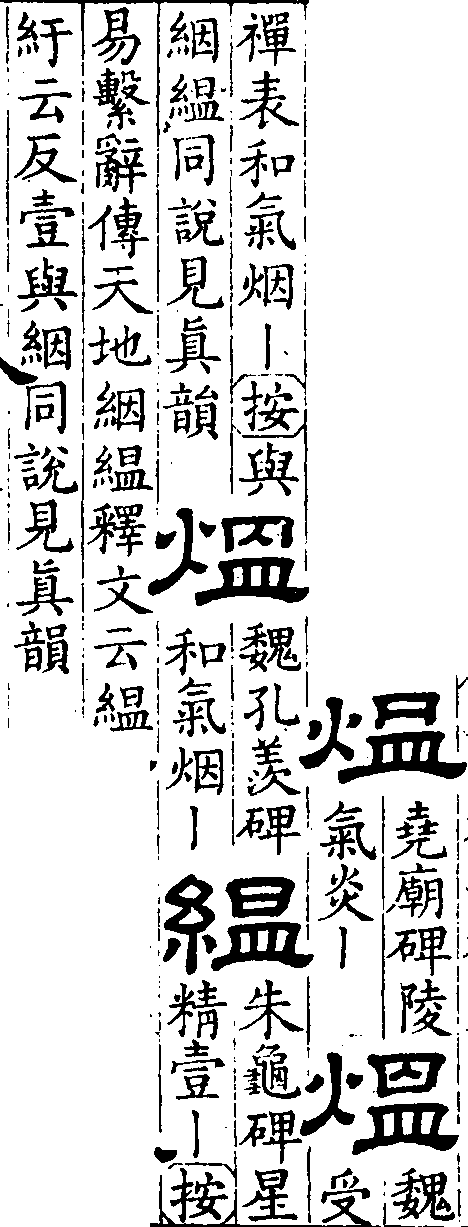 煴
堯廟碑陵
氣炎丨
熅
魏
受
禪表和氣烟丨按與
絪緼同說見眞韻
熅
魏孔羨碑
和氣烟丨
緼
朱龜碑星
精壹丨按
易繫辭傳天地絪緼釋文云緼
紆云反壹與絪同說見眞韻